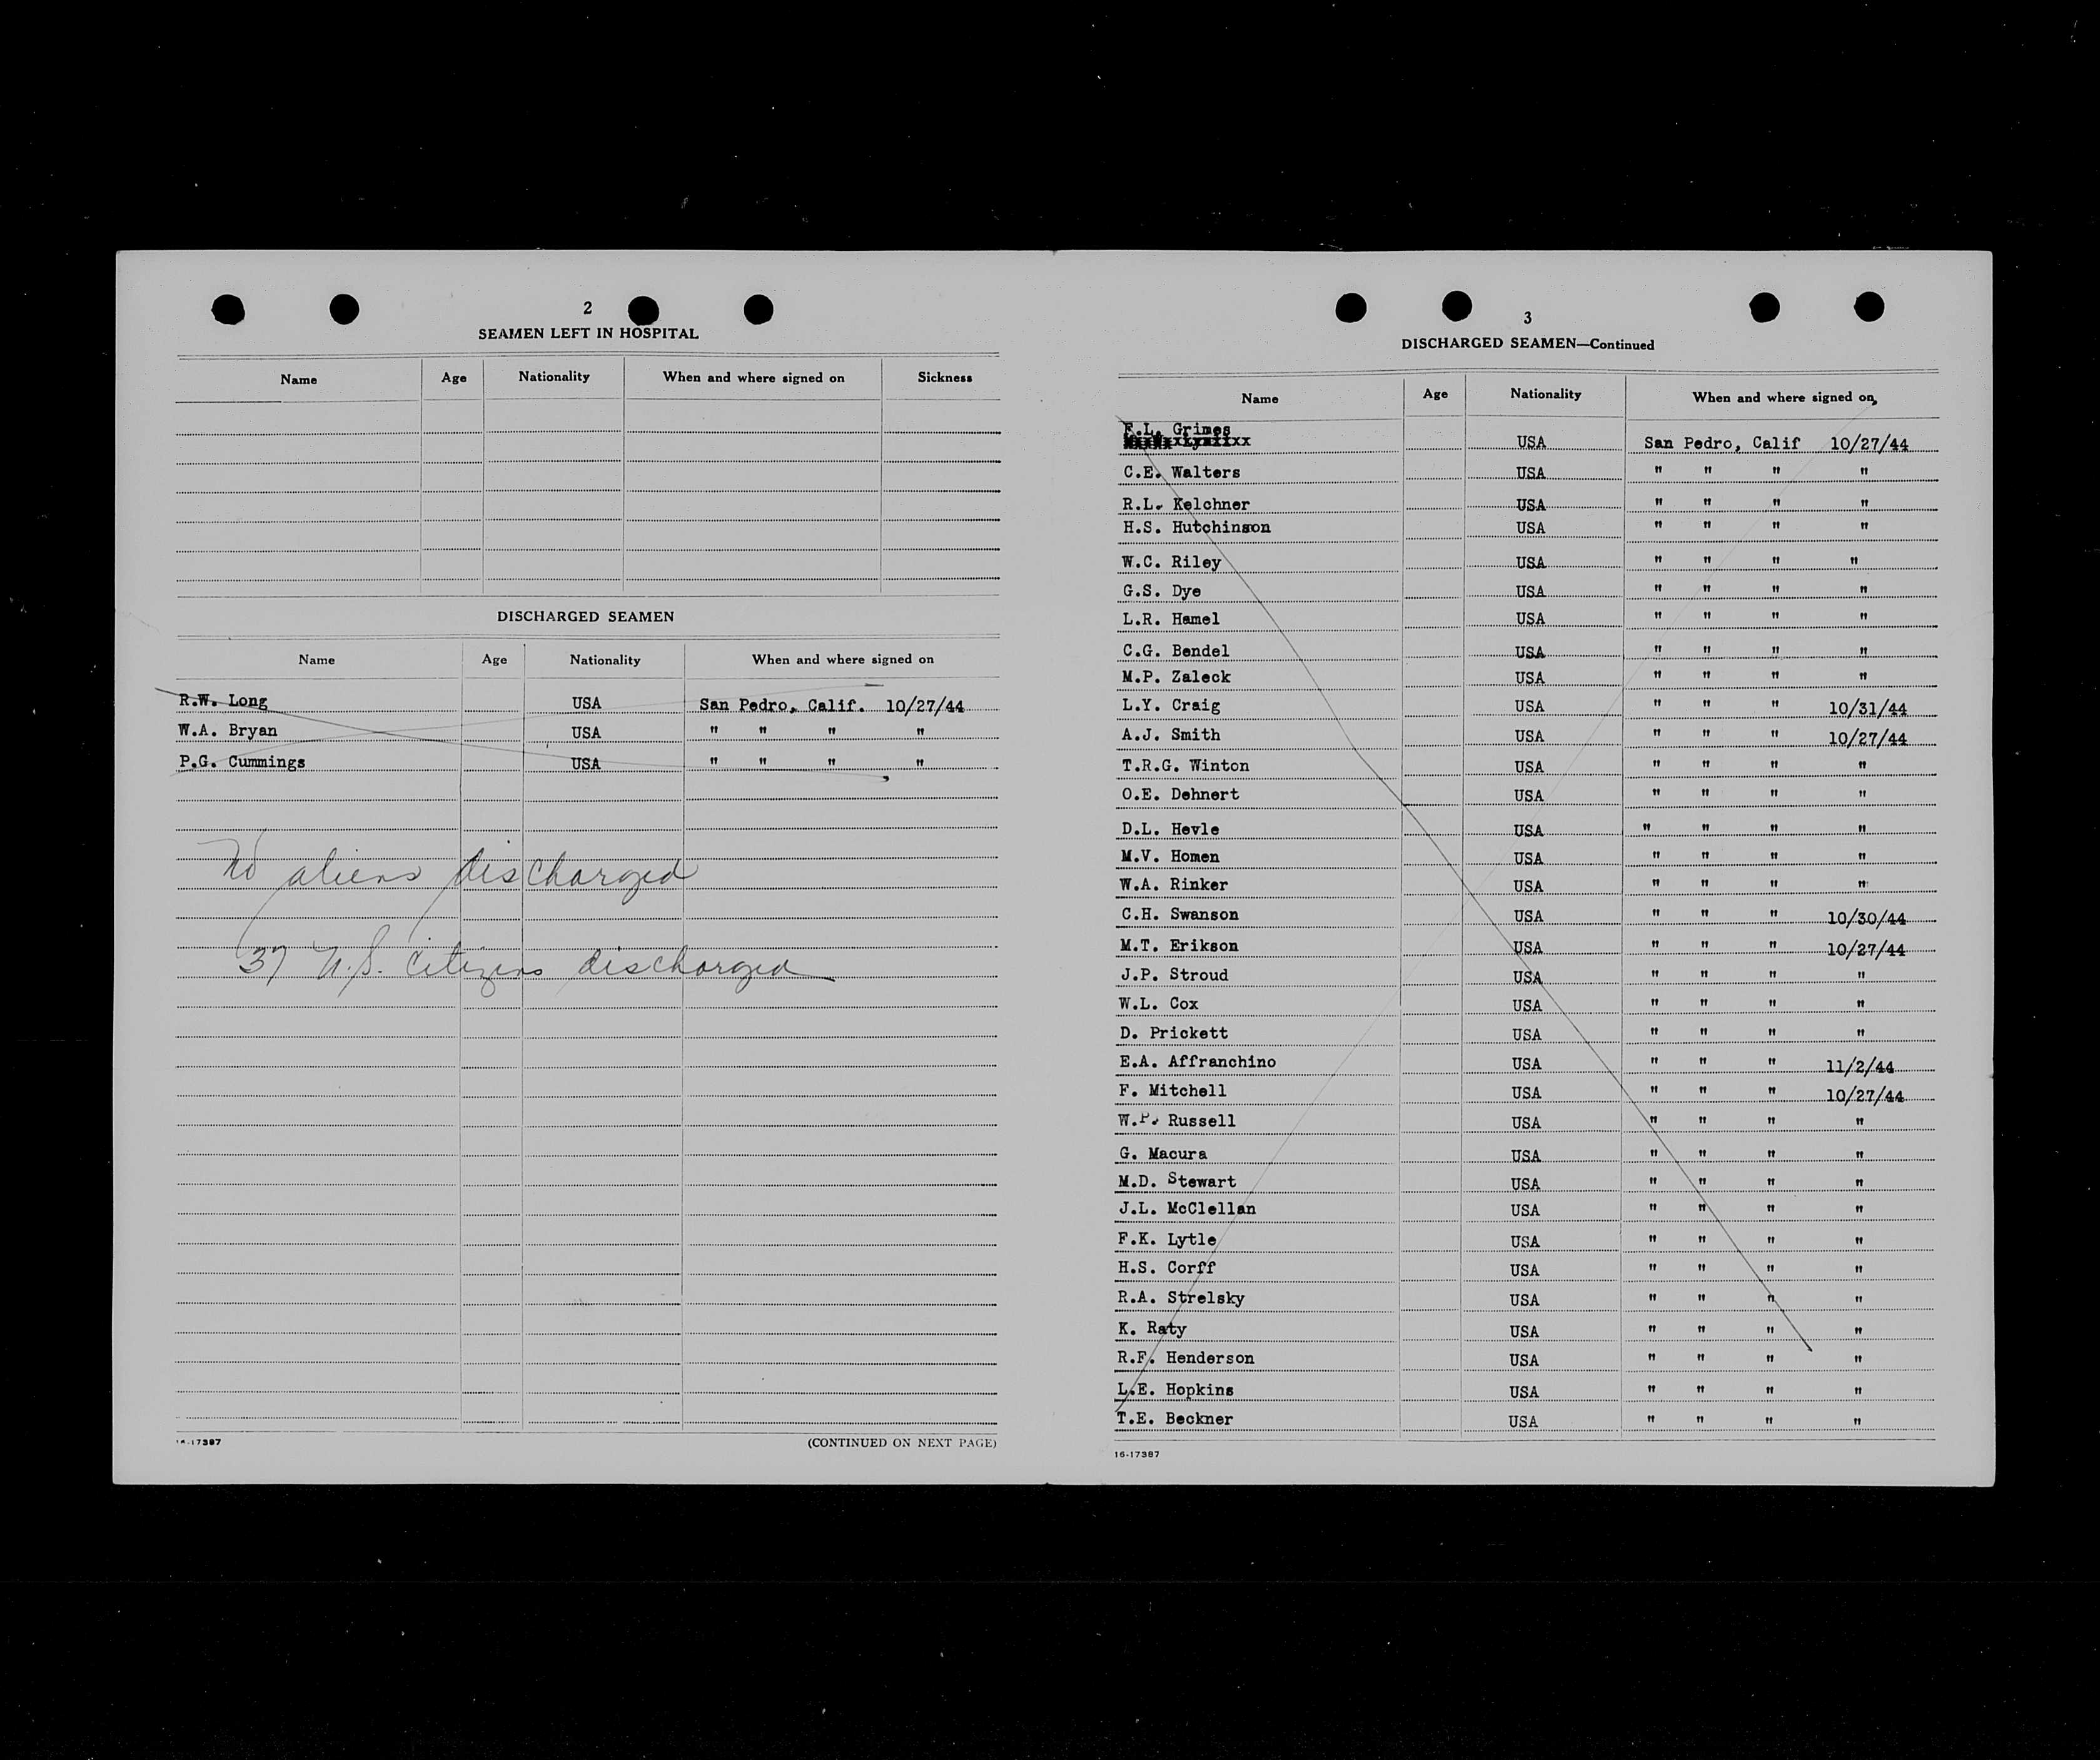 2
SEAMEN LEFT IN HOSPITAL
Name Age Nationality When and where signed on Sickness
DISCHARGED SEAMEN
Name Age Nationality When and where signed on
R.W. Long USA San Pedro, Calif. 10/27/44
W.A. Bryan USA " " " "
P.G. Cummings USA " " " "
No aliens discharged
37 U.S. citizens discharged
16-17387 (CONTINUED ON NEXT PAGE)
3
DISCHARGED SEAMEN—Continued
Name Age Nationality When and where signed on
F.L. Grimes
USA San Pedro, Calif 10/27/44
C.E. Walters USA " " " "
R.L. Kelchner USA " " " "
H.S. Hutchinson USA " " " "
W.C. Riley USA " " " "
G.S. Dye USA " " " "
L.R. Hamel USA " " " "
C.G. Bendel USA " " " "
M.P. Zaleck USA " " " "
L.Y. Craig USA " " " 10/31/44
A.J. Smith USA " " " 10/27/44
T.R.G. Winton USA " " " "
O.E. Dehnert USA " " " "
D.L. Hevle USA " " " "
M.V. Homen USA " " " "
W.A. Rinker USA " " " "
C.H. Swanson USA " " " 10/30/44
M.T. Erikson USA " " " 10/27/44
J.P. Stroud USA " " " "
W.L. Cox USA " " " "
D. Prickett USA " " " "
E.A. Affranchino USA " " " 11/2/44
F. Mitchell USA " " " 10/27/44
W.P. Russell USA " " " "
G. Macura USA " " " "
M.D. Stewart USA " " " "
J.L. McClellan USA " " " "
F.K. Lytle USA " " " "
H.S. Corff USA " " " "
R.A. Strelsky USA " " " "
K. Raty USA " " " "
R.F. Henderson USA " " " "
L.E. Hopkins USA " " " "
T.E. Beckner USA " " " "
16-17387